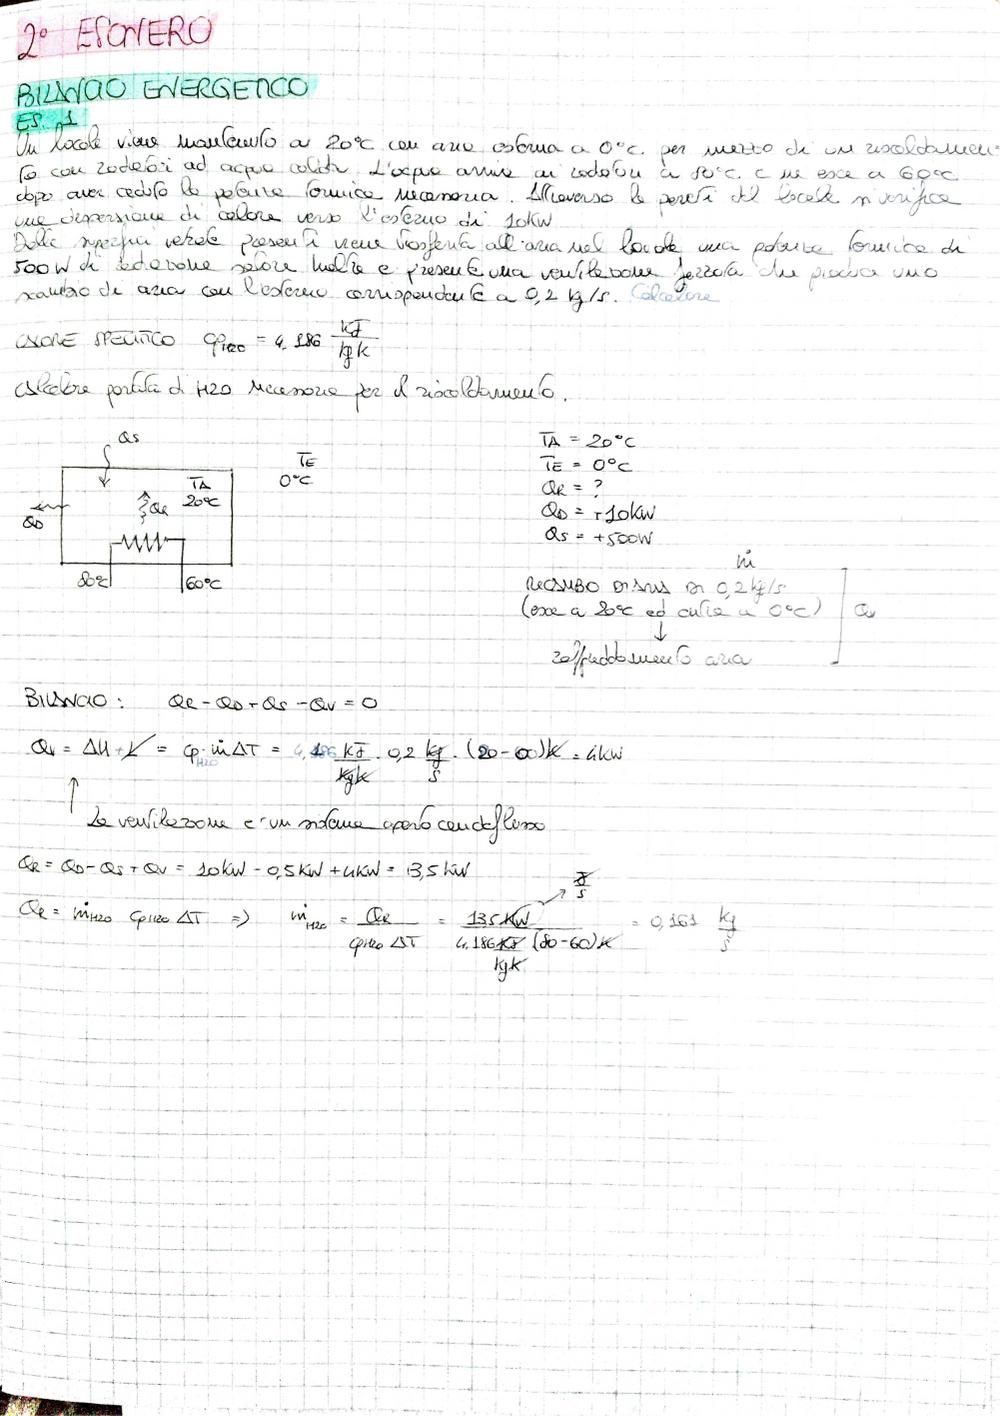 2° ESONERO
BILANCIO ENERGETICO
ES. 1
Un locale viene mantenuto a 20°C con aria esterna a 0°C. per mezzo di un riscaldamen-
to con radiatori ad acqua calda. L'acqua arriva ai radiatori a 80°C. e ne esce a 60°C
dopo aver ceduto la potenza termica necessaria. Attraverso le pareti del locale si verifica
una dispersione di calore verso l'esterno di 10KW
Dalle superfici vetrate presenti viene trasferita all'aria nel locale una potenza termica di
500W di radiazione solare. Inoltre è presente una ventilazione forzata che produce uno
scambio di aria con l'esterno corrispondente a 0,2 kg/s. Calcolare
CALORE SPECIFICO cpH2O = 4.186 KJ/kgK
Calcolare portata di H2O necessaria per il riscaldamento.
QS
TE
0°C
TA
20°C
QR
QD
80°C
60°C
TA = 20°C
TE = 0°C
QR = ?
QD = -10KW
QS = +500W
ṁ
RICAMBIO D'ARIA DI 0,2 kg/s
(esce a 20°C ed entra a 0°C)
QV
↓
raffreddamento aria
BILANCIO: QR - QD + QS - QV = 0
QV = ΔH + L = cp · ṁ ΔT = KJ/kgK · 0,2 kg/s · (20-0)K = 4KW
La ventilazione è un sistema aperto con deflusso
QR = QD - QS + QV = 10KW - 0,5KW + 4KW = 13,5 KW
QR = ṁH2O cpH2O ΔT => ṁH2O = QR/cpH2O ΔT = 13,5 KW/4.186 KJ/kgK (80-60)K = 0,161 kg/s
J/s